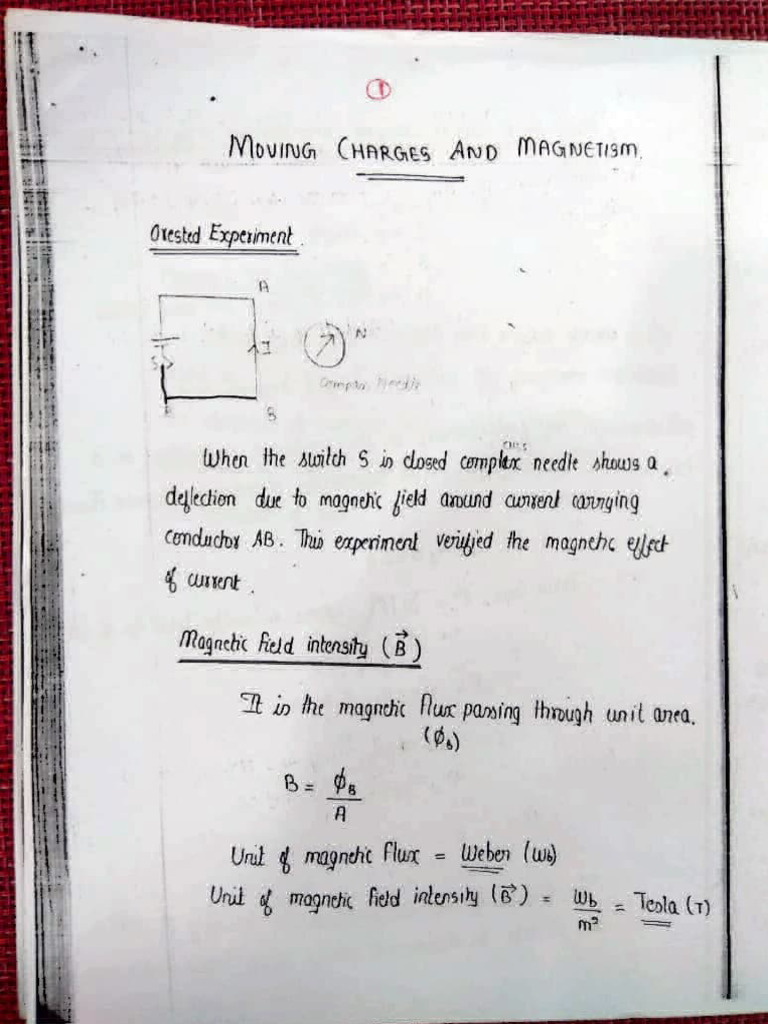 1
MOVING CHARGES AND MAGNETISM.
Orested Experiment.
A
I
N
S
Compass Needle
B
When the switch S is closed complex needle shows a
deflection due to magnetic field around current carrying
conductor AB. This experiment verified the magnetic effect
of current.
Magnetic field intensity (B⃗)
It is the magnetic flux passing through unit area.
(ϕ_B)
B = ϕ_B / A
Unit of magnetic flux = Weber (Wb)
Unit of magnetic field intensity (B⃗) = Wb/m² = Tesla (T)